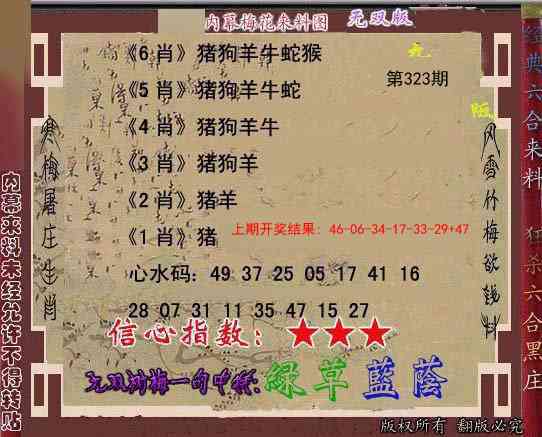 内幕梅花来料图 无双版
《6 肖》猪狗羊牛蛇猴
第323期
《5 肖》猪狗羊牛蛇
《4 肖》猪狗羊牛
《3 肖》猪狗羊
《2 肖》猪羊
《1 肖》猪
上期开奖结果: 46-06-34-17-33-29+47
心水码: 49 37 25 05 17 41 16
28 07 31 11 35 47 15 27
信心指数: ★★★
绿草蓝荫
内幕来料未经允许不得转贴
寒梅屠庄生肖
风雪竹梅欲钱料
经典六合来料
狂杀六合黑庄
版权所有 翻版必究